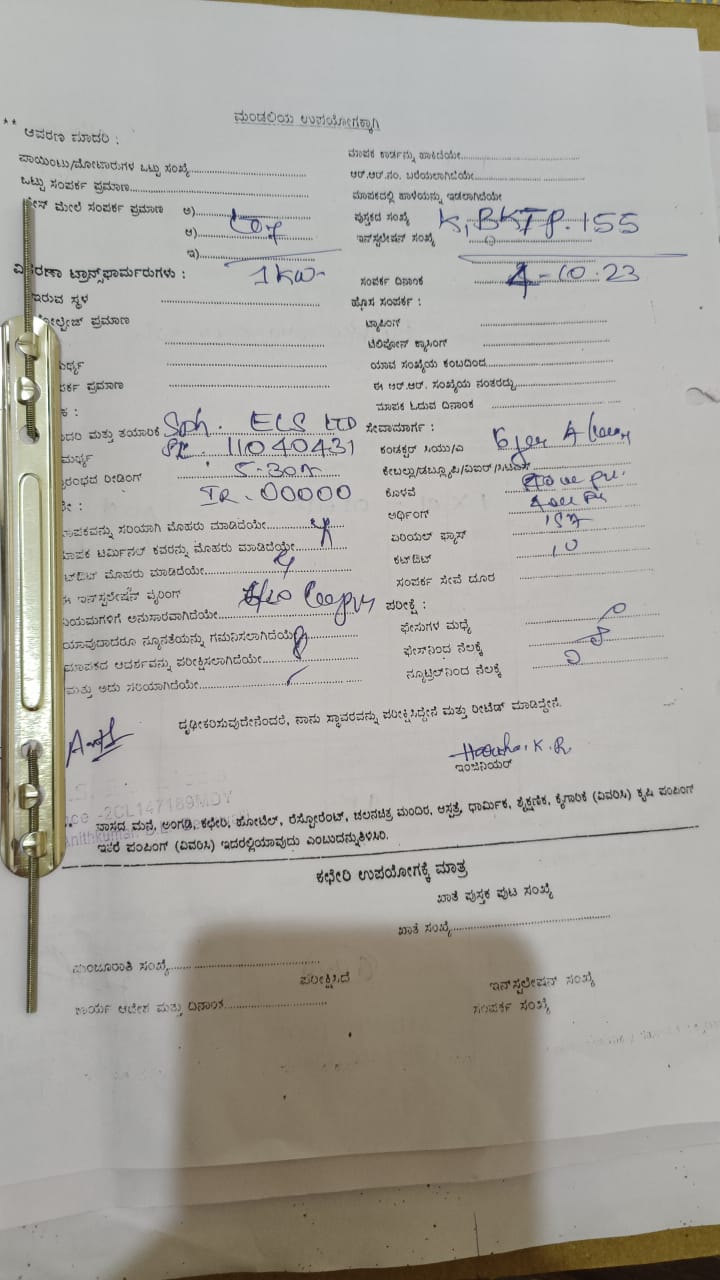 ಮಂಡಲಿಯ ಉಪಯೋಗಕ್ಕಾಗಿ
** ಆವರಣ ಮಾದರಿ :
ಪಾಯಿಂಟು/ಮೋಟಾರುಗಳ ಒಟ್ಟು ಸಂಖ್ಯೆ
ಒಟ್ಟು ಸಂಪರ್ಕ ಪ್ರಮಾಣ
ಮೇಲೆ ಸಂಪರ್ಕ ಪ್ರಮಾಣ ಅ)
ಆ)
ಇ)
1 KW
ಟ್ರಾನ್ಸ್‌ಫಾರ್ಮರುಗಳು :
ಇರುವ ಸ್ಥಳ
ಪ್ರಮಾಣ
ಪ್ರಮಾಣ
ಮತ್ತು ತಯಾರಿಕೆ Sph. ECS LTD
11040431
ರೀಡಿಂಗ್ 5-30A
IR. 00000
ಸರಿಯಾಗಿ ಮೊಹರು ಮಾಡಿದೆಯೇ
ಟರ್ಮಿನಲ್ ಕವರನ್ನು ಮೊಹರು ಮಾಡಿದೆಯೇ
ಮೊಹರು ಮಾಡಿದೆಯೇ
ಈ ಇನ್‌ಸ್ಟಲೇಷನ್ ವೈರಿಂಗ್
ನಿಯಮಗಳಿಗೆ ಅನುಸಾರವಾಗಿದೆಯೇ
ಯಾವುದಾದರೂ ನ್ಯೂನತೆಯನ್ನು ಗಮನಿಸಲಾಗಿದೆಯೆ
ಮಾಪಕದ ಆದರ್ಶವನ್ನು ಪರೀಕ್ಷಿಸಲಾಗಿದೆಯೇ
ಮತ್ತು ಅದು ಸರಿಯಾಗಿದೆಯೇ
ಮಾಪಕ ಕಾರ್ಡನ್ನು ಹಾಕಿದೆಯೇ
ಆರ್.ಆರ್.ನಂ. ಬರೆಯಲಾಗಿದೆಯೇ
ಮಾಪಕದಲ್ಲಿ ಹಾಳೆಯನ್ನು ಇಡಲಾಗಿದೆಯೇ
ಪುಸ್ತಕದ ಸಂಖ್ಯೆ K,BKTP.155
ಇನ್‌ಸ್ಟಲೇಷನ್ ಸಂಖ್ಯೆ
ಸಂಪರ್ಕ ದಿನಾಂಕ 4-10.23
ಹೊಸ ಸಂಪರ್ಕ :
ಟ್ಯಾಪಿಂಗ್
ಟೆಲಿಫೋನ್ ಕ್ರಾಸಿಂಗ್
ಯಾವ ಸಂಖ್ಯೆಯ ಕಂಬದಿಂದ
ಈ ಆರ್.ಆರ್. ಸಂಖ್ಯೆಯ ನಂತರದ್ದು
ಮಾಪಕ ಓದುವ ದಿನಾಂಕ
ಸೇವಾಮಾರ್ಗ :
ಕಂಡಕ್ಟರ್ ಸಿಯು/ಎ
ಕೇಬಲ್ಲು/ಡಬ್ಲ್ಯೂಪಿ/ವಿಐಆರ್/ಸಿಟಿಎಸ್
ಕೊಳವೆ
ಅರ್ಥಿಂಗ್
ಏರಿಯಲ್ ಫ್ಯೂಸ್ 15A
ಕಟ್‌ಔಟ್ 10
ಸಂಪರ್ಕ ಸೇವೆ ದೂರ
ಪರೀಕ್ಷೆ :
ಫೇಸುಗಳ ಮಧ್ಯೆ
ಫೇಸ್‌ನಿಂದ ನೆಲಕ್ಕೆ
ನ್ಯೂಟ್ರಲ್‌ನಿಂದ ನೆಲಕ್ಕೆ
ದೃಢೀಕರಿಸುವುದೇನೆಂದರೆ, ನಾನು ಸ್ಥಾವರವನ್ನು ಪರೀಕ್ಷಿಸಿದ್ದೇನೆ ಮತ್ತು ರೀಟೆಡ್ ಮಾಡಿದ್ದೇನೆ.
ಇಂಜಿನಿಯರ್
-2CL147189MDY
** ವಾಸದ ಮನೆ, ಅಂಗಡಿ, ಕಛೇರಿ, ಹೋಟೆಲ್, ರೆಸ್ಟೋರೆಂಟ್, ಚಲನಚಿತ್ರ ಮಂದಿರ, ಆಸ್ಪತ್ರೆ, ಧಾರ್ಮಿಕ, ಶೈಕ್ಷಣಿಕ, ಕೈಗಾರಿಕೆ (ವಿವರಿಸಿ) ಕೃಷಿ ಪಂಪಿಂಗ್
ಇತರೆ ಪಂಪಿಂಗ್ (ವಿವರಿಸಿ) ಇದರಲ್ಲಿಯಾವುದು ಎಂಬುದನ್ನುತಿಳಿಸಿರಿ.
ಕಛೇರಿ ಉಪಯೋಗಕ್ಕೆ ಮಾತ್ರ
ಖಾತೆ ಪುಸ್ತಕ ಪುಟ ಸಂಖ್ಯೆ
ಖಾತೆ ಸಂಖ್ಯೆ
ಮಂಜೂರಾತಿ ಸಂಖ್ಯೆ
ಪರೀಕ್ಷಿಸಿದೆ
ಇನ್‌ಸ್ಟಲೇಷನ್ ಸಂಖ್ಯೆ
ಕಾರ್ಯ ಆದೇಶ ಮತ್ತು ದಿನಾಂಕ
ಸಂಪರ್ಕ ಸಂಖ್ಯೆ